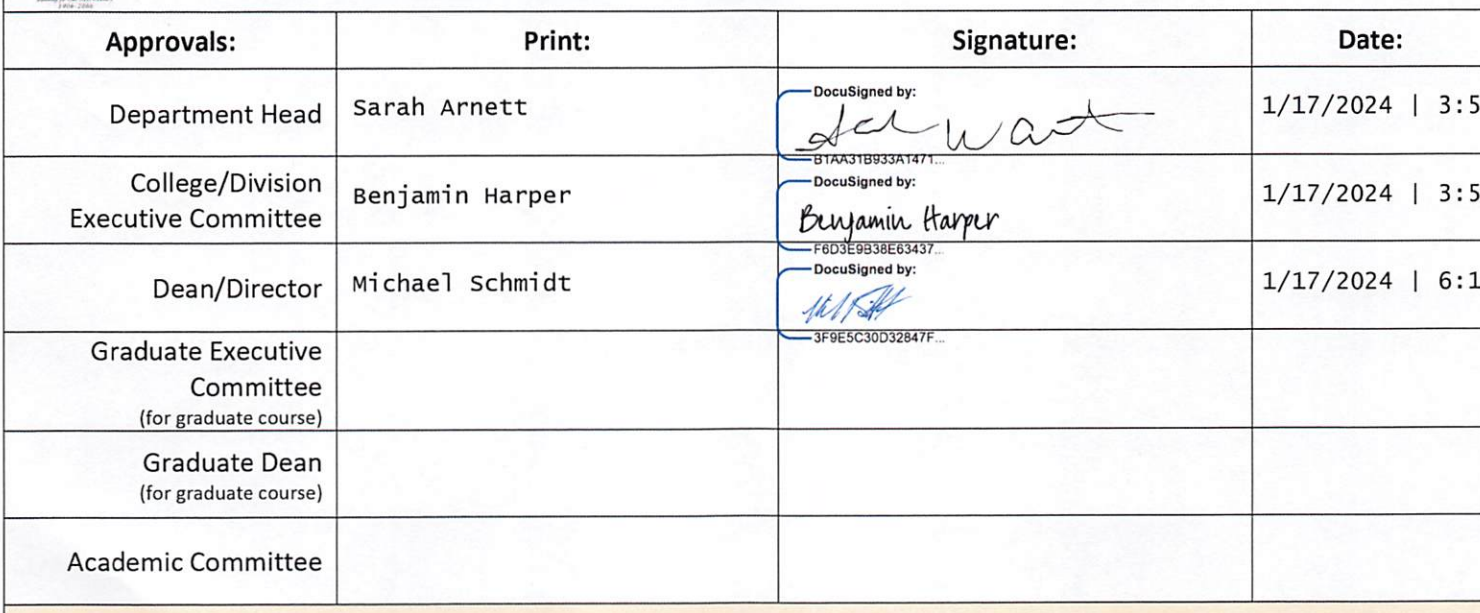 Approvals: Print: Signature: Date:
Department Head Sarah Arnett DocuSigned by: 1/17/2024 | 3:5
B1AA31B933A1471...
College/Division
Executive Committee Benjamin Harper DocuSigned by: 1/17/2024 | 3:5
Benjamin Harper
F6D3E9B38E63437...
Dean/Director Michael Schmidt DocuSigned by: 1/17/2024 | 6:1
3F9E5C30D32847F...
Graduate Executive
Committee
(for graduate course)
Graduate Dean
(for graduate course)
Academic Committee